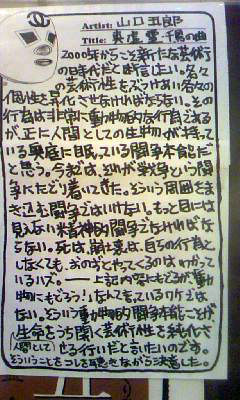 Artist: 山口五郎
Title: 奥虚霊・千鳥の曲
2000年からこそ新たな芸術
の時代だと断言したい。各々
の芸術性をぶつけあい各々の
個性と昇化させなければならない。その
行為は非常に動物的な行為である
が、正に人間としての生物が持って
いる奥底に眠っている闘争本能だ
と思う。今までは、それが戦争という闘
争へたどり着いてきた。そういう周囲をま
き込む闘争ではいけない。もっと目には
見えない精神的闘争でなければな
らない。死は、崩壊は、自らの行為と
しなくても、おのずとやってくるのはわかって
いるハズ。――上記の唄にもどるが、動
物にもどろう!なんて言っているワケではな
い。そういう動物的闘争本能こそが
生命をうち開く芸術性を純化さ
(人間として)せる行いだと言いたいのです。
そういうことをつしを聴きながら決意した。